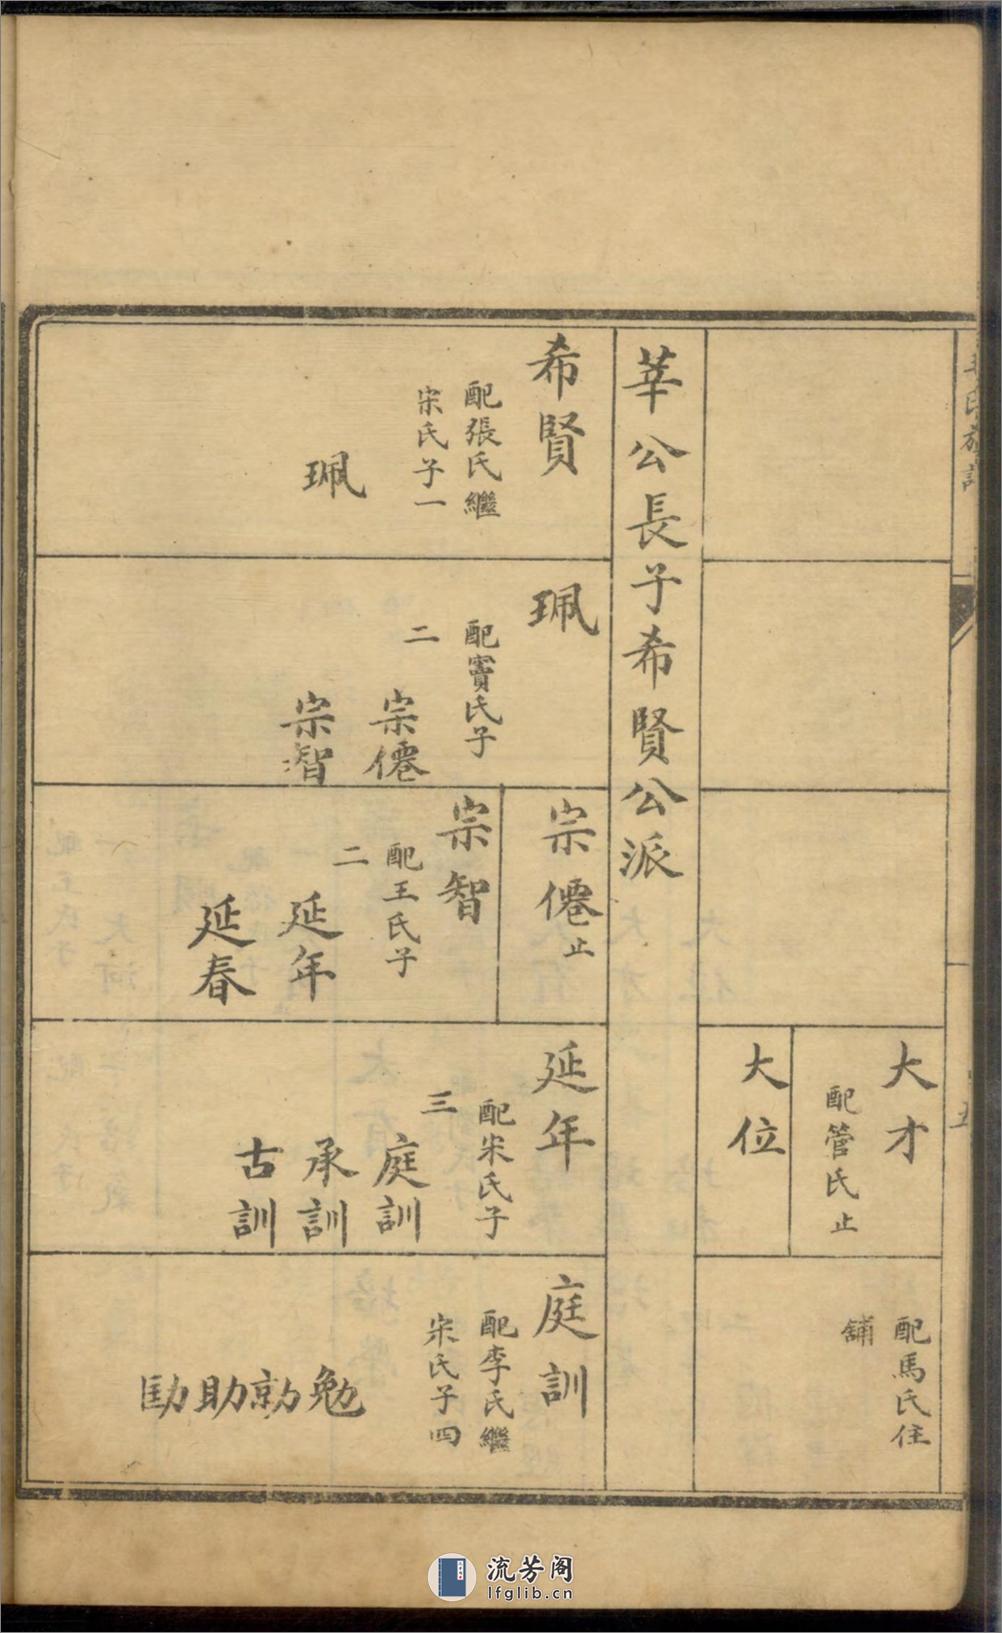 大才
配管氏止
大位
配馬氏住
舖
莘公長子希賢公派
希賢
配張氏繼
宋氏子一
珮
珮
配竇氏子
二
宗僊
宗智
宗僊止
宗智
配王氏子
二
延年
延春
延年
配宋氏子
三
庭訓
承訓
古訓
庭訓
配李氏繼
宋氏子四
勉
勍
助
劻
流芳阁
lfglib.cn